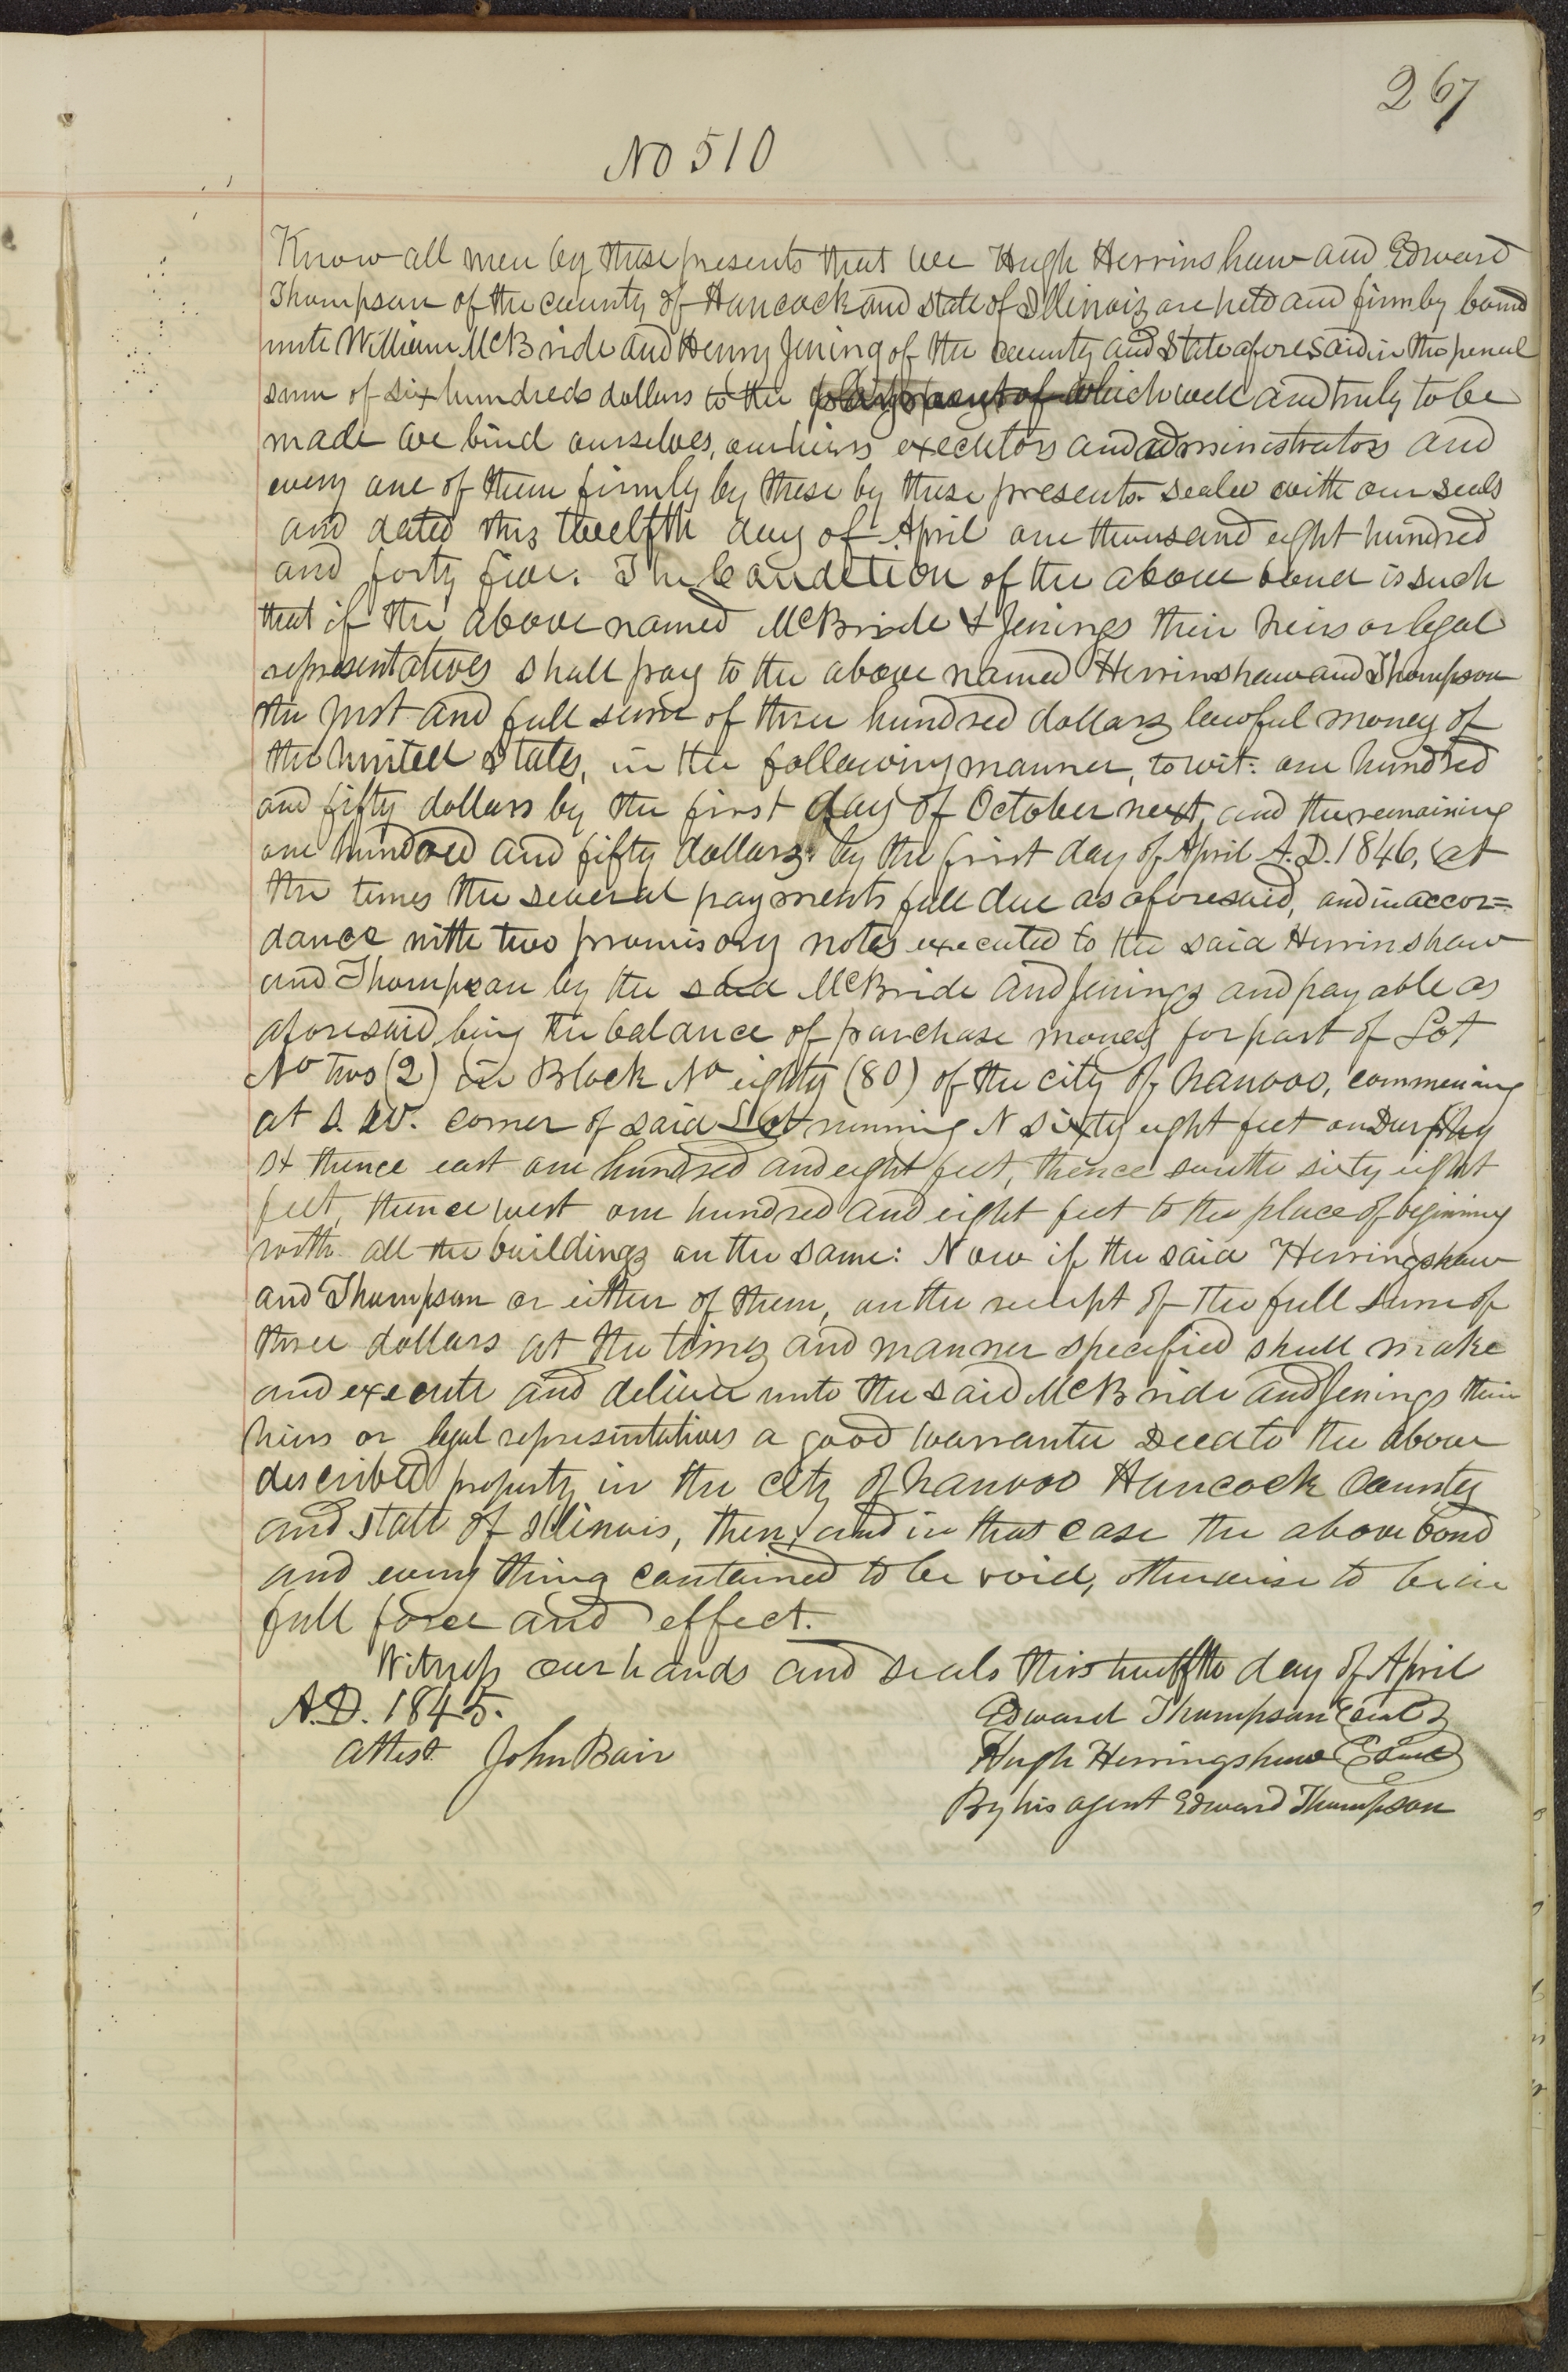 267
No 510
Know all men by these presents that we Hugh Herrinshaw and Edward
Thompson of the county of Hancock and state of Illinois are held and firmly bound
unto William McBride and Henry Jening of the county and State aforesaid in the penal
sum of six hundreds dollars to the payment of which well and truly to be
made we bind ourselves, our heirs executors and administrators and
every one of them firmly by these by these presents. sealed with our seals
and dated this twelfth day of April one thousand eight hundred
and forty five. The Condition of the above bond is such
that if the above named McBride & Jenings their heirs or legal
representatives shall pay to the above named Herrinshaw and Thompson
the just and full sum of three hundred dollars lawful money of
the united States, in the following manner, to wit: one hundred
and fifty dollars by the first day of October next, and the remaining
one hundred and fifty dollars by the first day of April A.D. 1846, at
the times the several payments fall due as aforesaid, and in accor=
dance with two promisory notes executed to the said Herrinshaw
and Thompson by the said McBride and Jenings and payable as
aforesaid, being the balance of purchase money for part of Lot
No two (2) in Block No eighty (80) of the city of nauvoo, commencing
at S. W. corner of said Lot running N sixty eight feet on Durphy
st thence east one hundred and eight feet, thence south sixty eight
feet, thence west one hundred and eight feet to the place of begining
with all the buildings on the same: Now if the said Herringshaw
and Thompson or either of them, on the receipt of the full sum of
three dollars at the times and manner specified shall make
and execute and deliver unto the said McBride and Jenings their
heirs or legal representatives a good warrantee Deed to the above
described property in the city of nauvoo Hancock County
and state of Illinois, then, and in that case the above bond
and every thing contained to be void, otherwise to be in
full force and effect.
Witness our hands and seals this twelfth day of April
A.D. 1845.
Edward Thompson seal
attest John Bair
Hugh Herringshaw seal
By his agent Edward Thompson